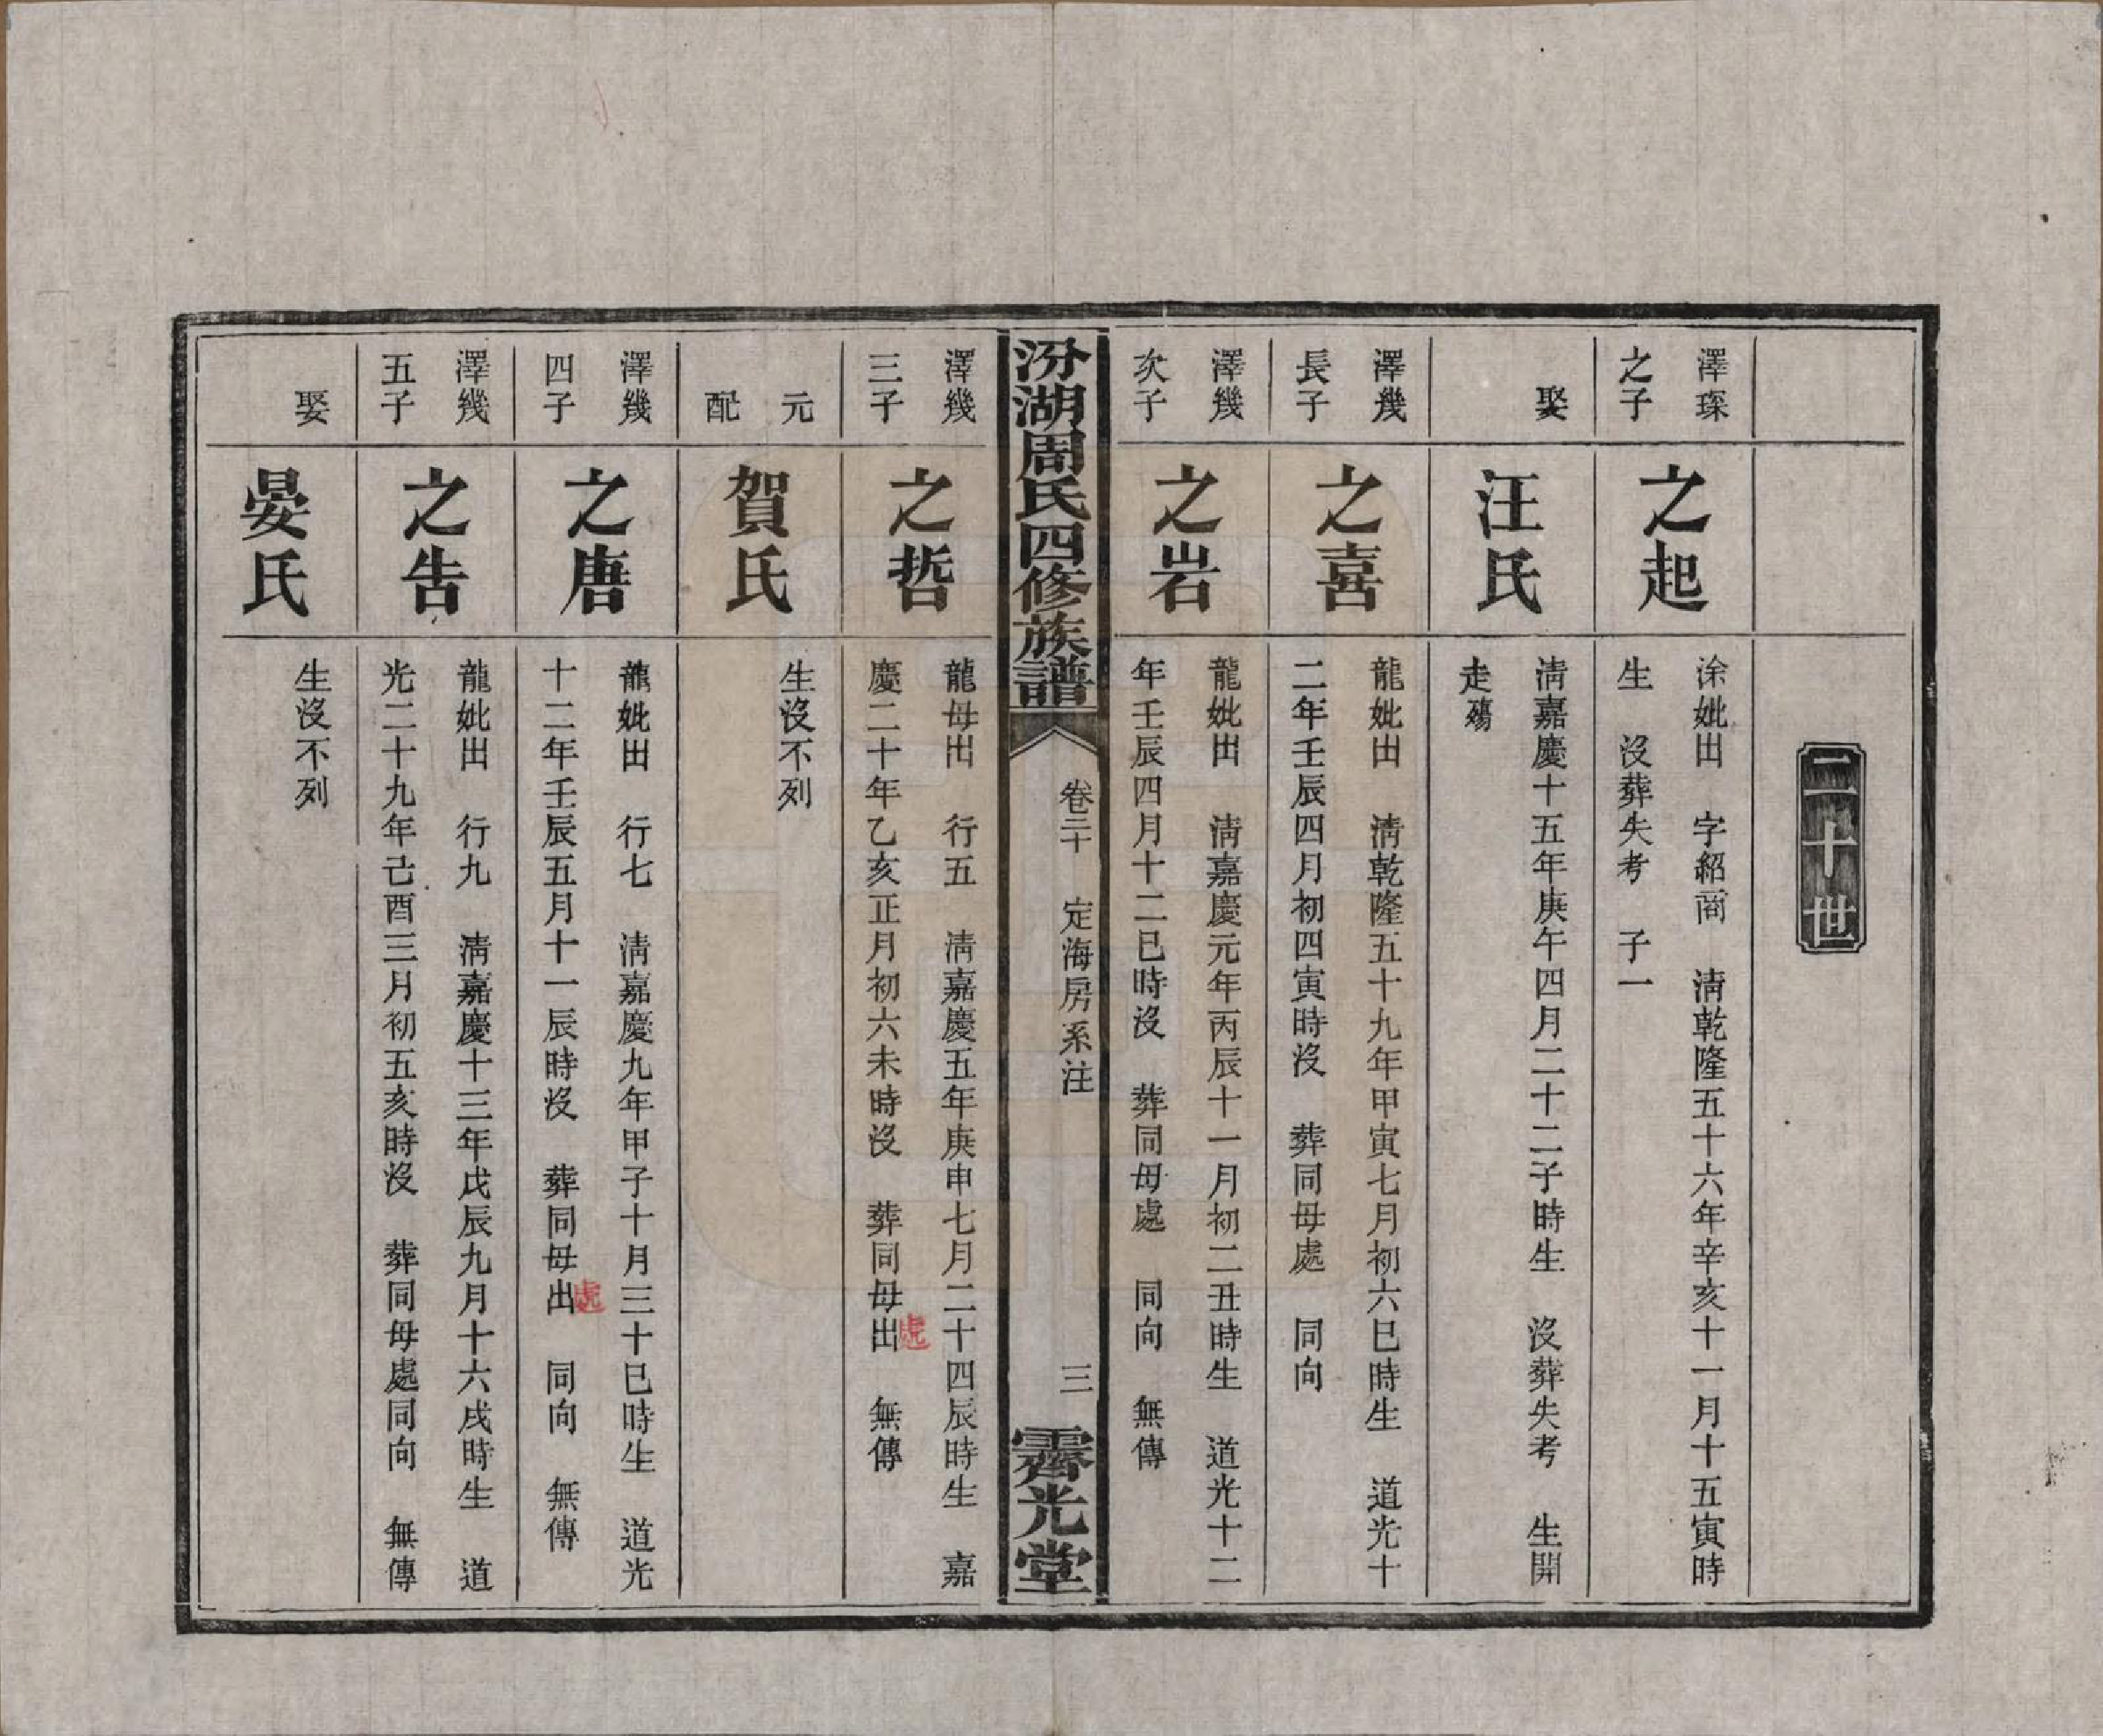 二十世
澤琛
之子
之起
涂妣出　字紹商　淸乾隆五十六年辛亥十一月十五寅時
生　沒葬失考　子一
娶
汪氏
淸嘉慶十五年庚午四月二十二子時生　沒葬失考　生開
走殤
澤幾
長子
之喜
龍妣出　淸乾隆五十九年甲寅七月初六巳時生　道光十
二年壬辰四月初四寅時沒　葬同母處　同向
澤幾
次子
之岩
龍妣出　淸嘉慶元年丙辰十一月初二丑時生　道光十二
年壬辰四月十二巳時沒　葬同母處　同向　無傳
汾湖周氏四修族譜
卷二十　定海房系注
三
霽光堂
澤幾
三子
之哲
龍母出　行五　淸嘉慶五年庚申七月二十四辰時生　嘉
慶二十年乙亥正月初六未時沒　葬同母出　無傳
處
元
配
賀氏
生沒不列
澤幾
四子
之唐
龍妣出　行七　淸嘉慶九年甲子十月三十巳時生　道光
十二年壬辰五月十一辰時沒　葬同母出　同向　無傳
處
澤幾
五子
之告
龍妣出　行九　淸嘉慶十三年戊辰九月十六戌時生　道
光二十九年己酉三月初五亥時沒　葬同母處同向　無傳
娶
晏氏
生沒不列